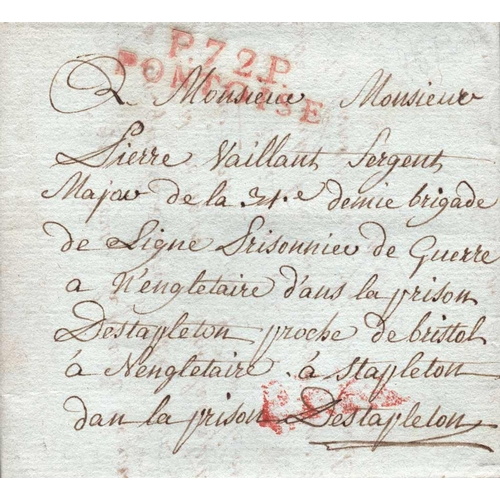 P.72.P.
PONTOISE
A Monsieur Monsieur
Pierre Vaillant Sergent
Major de la 31.e demie brigade
de Ligne Prisonnier de Guerre
a N'engletaire d'ans la prison
Destapleton proche de bristol
à Nengletaire à Stapleton
dan la prison Destapleton